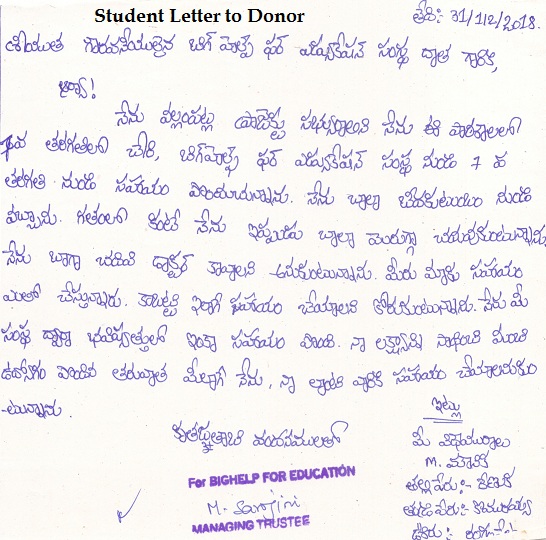 Student Letter to Donor
తేది: 31/12/2018.
శ్రీయుత గౌరవనీయులైన బిగ్ హెల్ప్ ఫర్ ఎడ్యుకేషన్ సంస్థ దాత గారికి,
ఆర్యా!
నేను పల్లంపట్ల ప్రాజెక్టు సభ్యురాలిని నేను ఈ పాఠశాలలో
7వ తరగతిలో చేరి, బిగ్ హెల్ప్ ఫర్ ఎడ్యుకేషన్ సంస్థ నుండి 7 వ
తరగతి నుండి సహాయం పొందుచున్నాను. నేను చాలా బీదకుటుంబం నుండి
వచ్చాను. గతంలో కంటే నేను ఇప్పుడు చాలా మెరుగ్గా చదువుకుంటున్నాను
నేను బాగా చదివి డాక్టర్ కావాలని అనుకుంటున్నాను. మీరు మాకు సహాయం
ఎంతో చేస్తున్నారు. కాబట్టి ఇలాగే సహాయం చేయాలని కోరుకుంటున్నాను. నేను మీ
సంస్థ ద్వారా భవిష్యత్తులో ఇంకా సహాయం పొంది. నా లక్ష్యాన్ని సాధించి మంచి
ఉద్యోగం పొందిన తరువాత మీలాగే నేను, నా లాంటి వారికి సహాయం చేయాలనుకుం
-టున్నాను.
కృతజ్ఞతాభి వందనములతో
ఇట్లు
మీ విధేయురాలు
M.
తల్లిపేరు:- రేణుక
తండ్రిపేరు:- కొమురయ్య
ఊరు:-
For BIGHELP FOR EDUCATION
M. Sarojini
MANAGING TRUSTEE